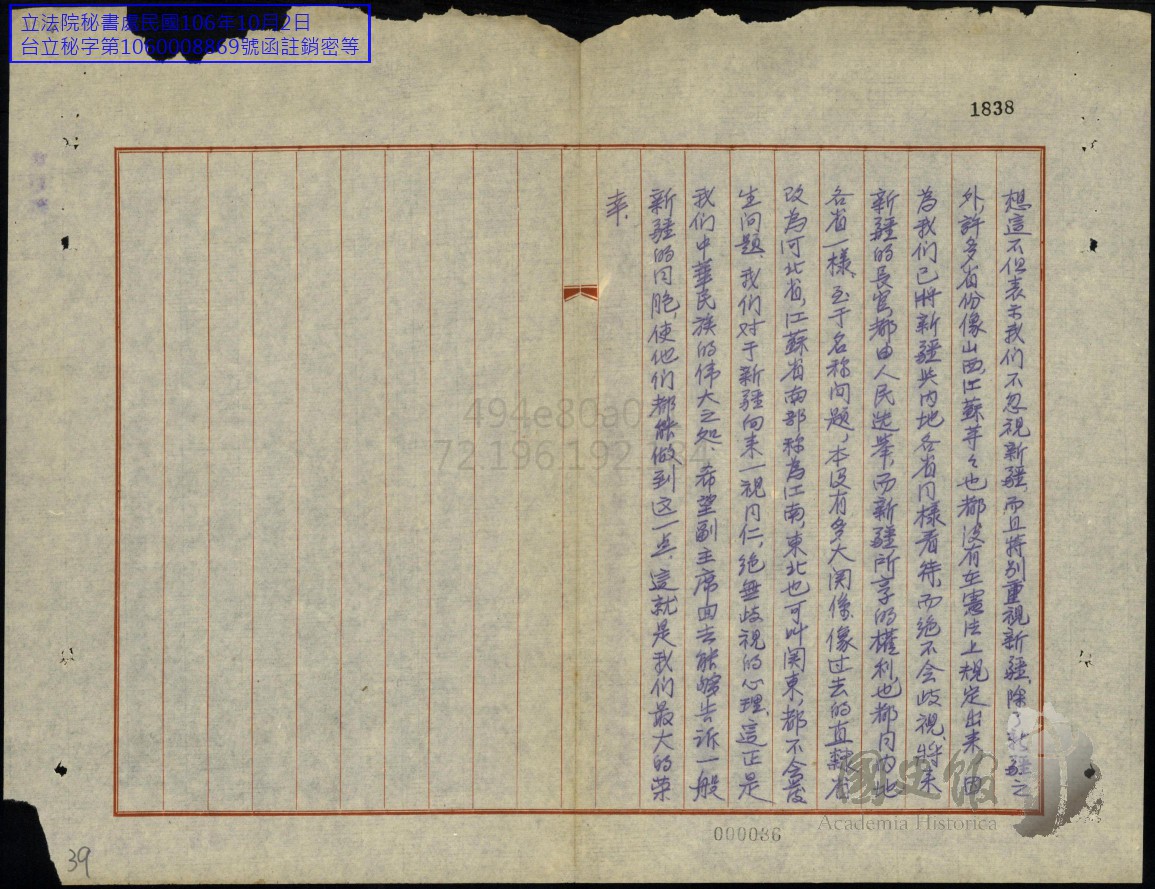 立法院秘書處民國106年10月2日
台立秘字第1060008869號函註銷密等
1838
想這不但表示我们不忽視新疆，而且特別重視新疆，除了新疆之
外，許多省份像山西，江蘇苹々也都没有在憲法上規定出来，因
為我们已將新疆與内地各省同様看待，而绝不会歧視，將来
新疆的長官都由人民选举，而新疆所享的權利也都同内地
各省一樣，至于名称问题，本没有多大関係，像过去的直隸省
改為河北省，江蘇省南部称為江南，東北也可叫関東，都不会發
生问题，我们对于新疆向来一視同仁，绝無歧視的心理，這正是
我们中華民族的伟大之処，希望副主席回去能够告訴一般
新疆的同胞，使他们都能做到这一点，這就是我们最大的荣
幸，
494e80a04
72.196.192.184
國史館
Academia Historica
000036
39